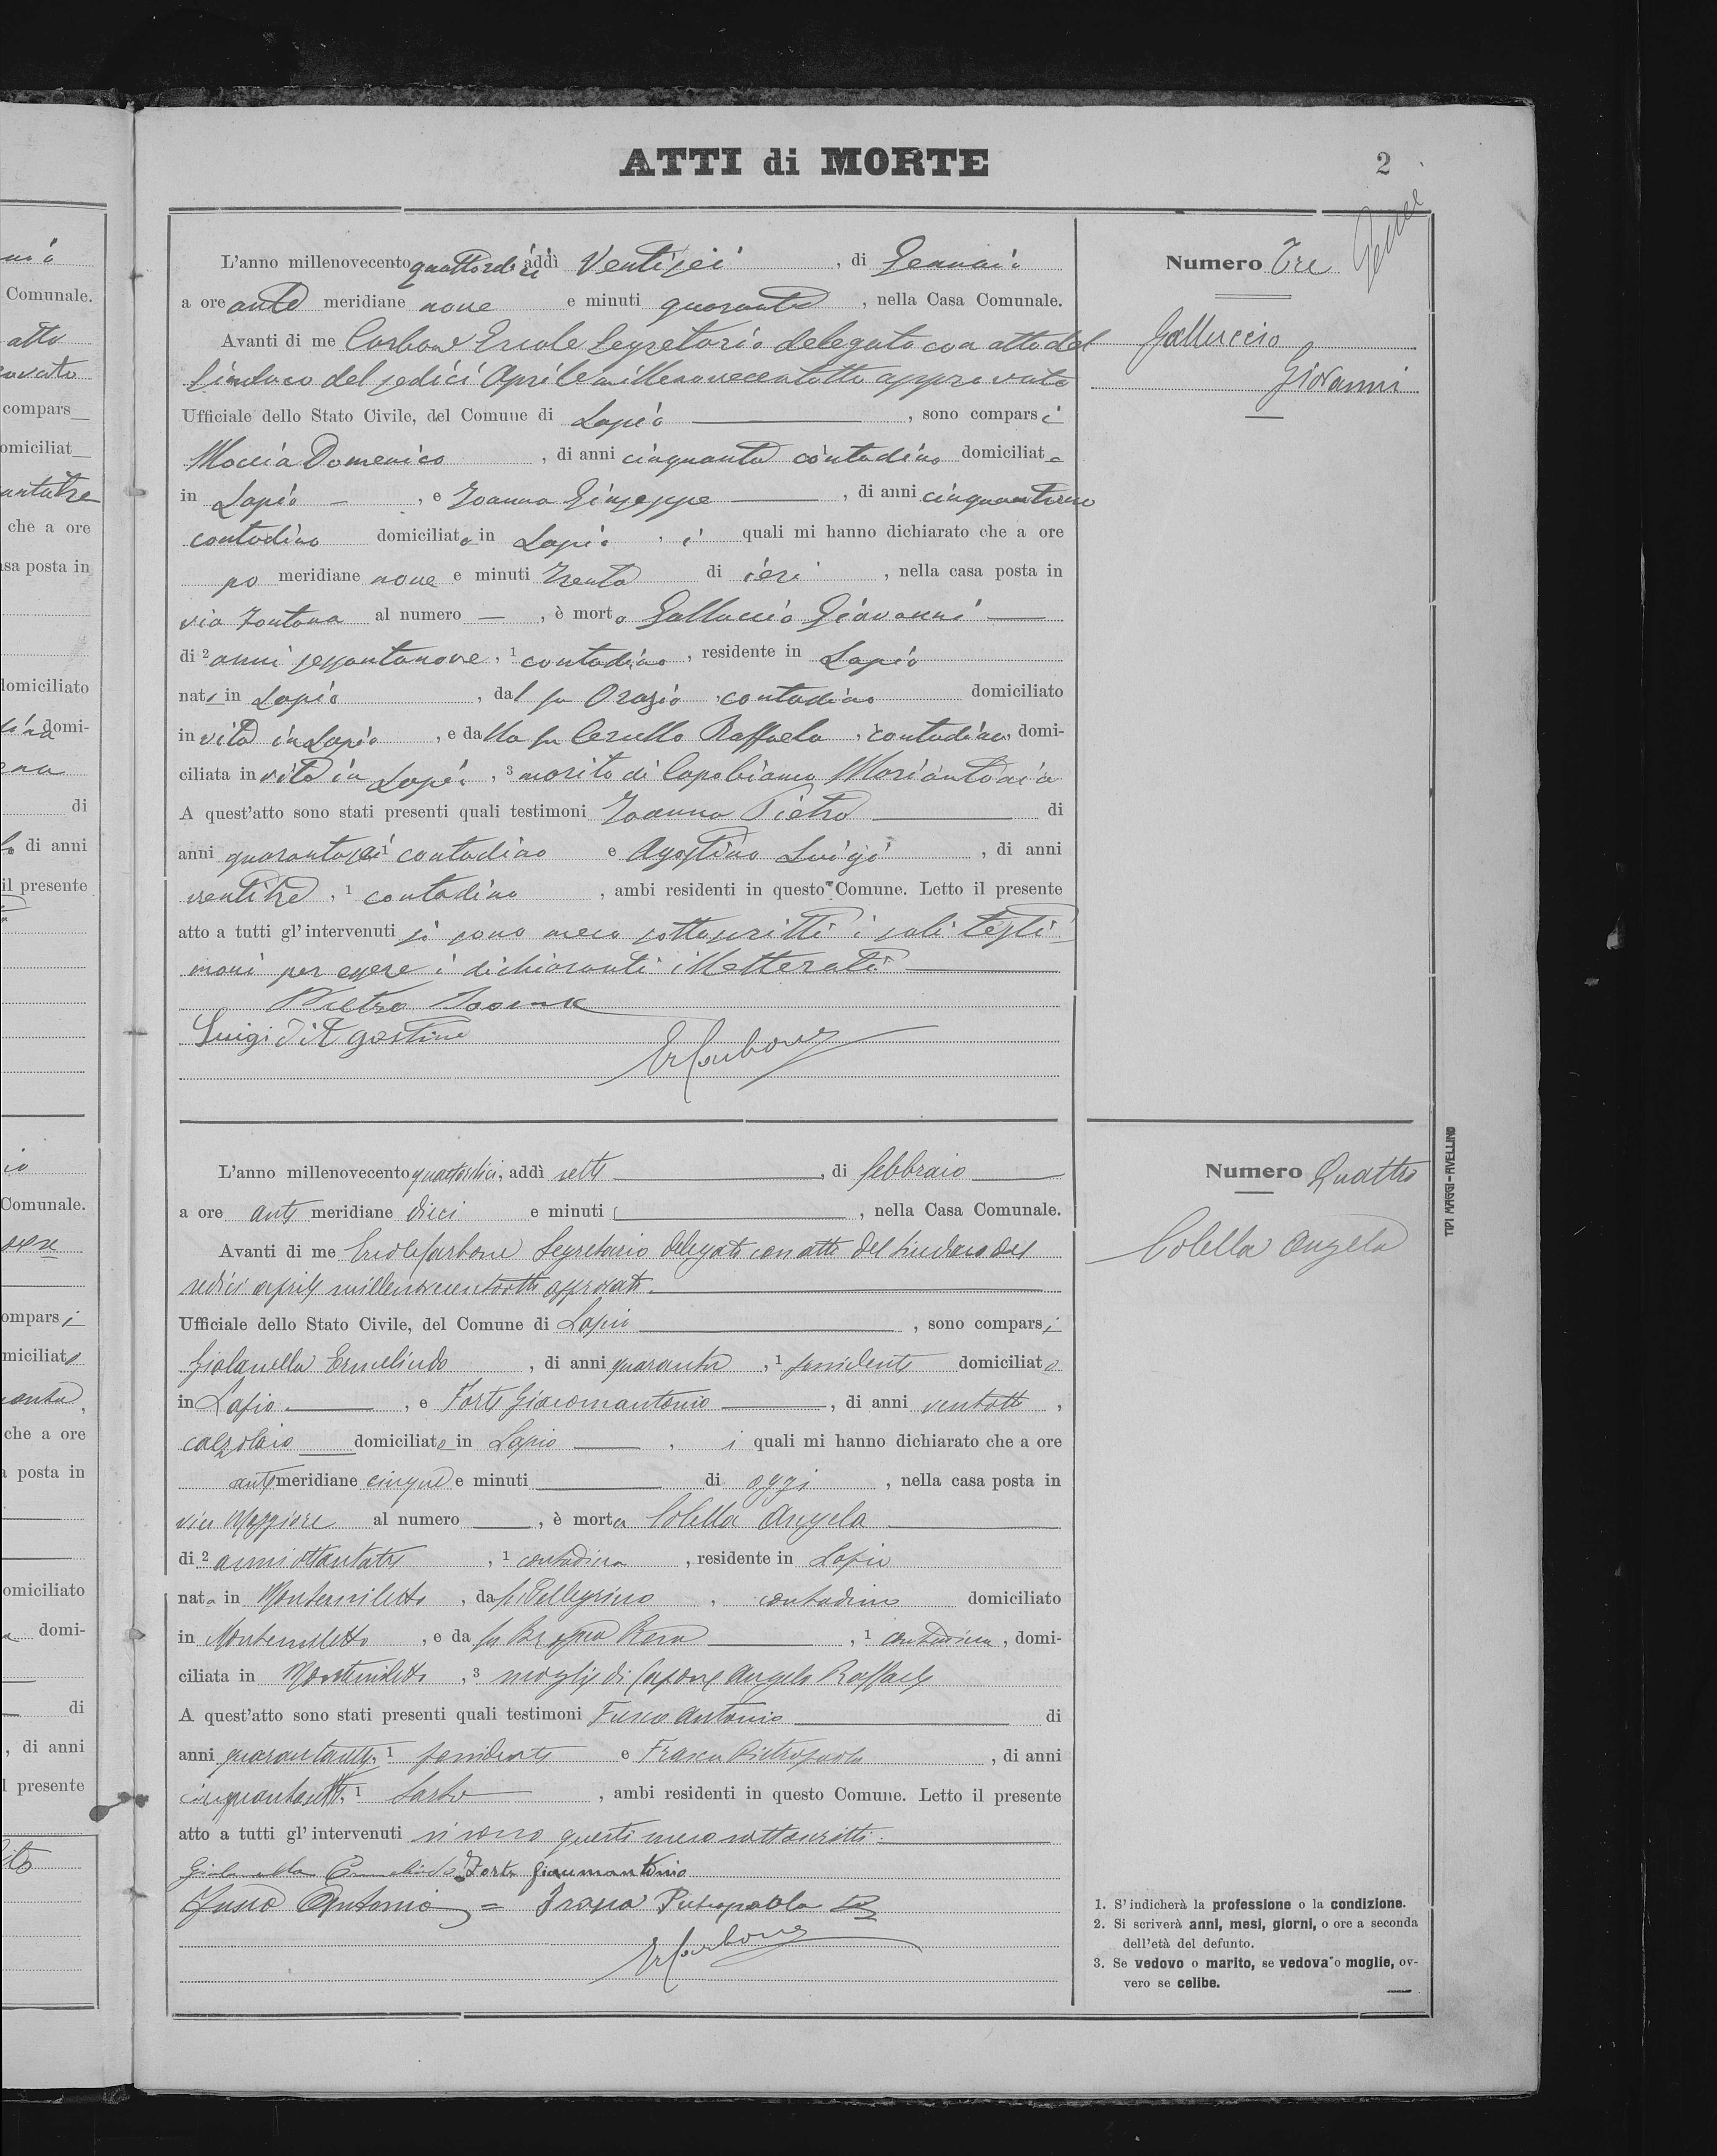 ATTI di MORTE
2
L'anno millenovecento quattordici addì Ventisei, di Gennaio
a ore ante meridiane nove e minuti quaranta, nella Casa Comunale.
Avanti di me Carbone Ercole Segretario delegato con atto del
Sindaco del sedici Aprile millenovecentotto approvato
Ufficiale dello Stato Civile, del Comune di Lapio, sono comparsi
Moccia Domenico, di anni cinquanta contadino domiciliato
in Lapio, e Joanna Giuseppe, di anni cinquantuno
contadino domiciliato in Lapio, i quali mi hanno dichiarato che a ore
po meridiane nove e minuti trenta di ieri, nella casa posta in
via Fontana al numero —, è morto Galluccio Giovanni
di 2 anni sessantanove, 1 contadino, residente in Lapio
nato in Lapio, dal fu Orazio, contadino domiciliato
in vita in Lapio, e dalla fu Cerullo Raffaela, contadina, domi-
ciliata in vita in Lapio, 3 marito di Capobianco Mariantonia
A quest'atto sono stati presenti quali testimoni Joanna Pietro di
anni quarantasei 1 contadino e Agostino Luigi, di anni
ventitre, 1 contadino, ambi residenti in questo Comune. Letto il presente
atto a tutti gl'intervenuti si sono meco sottoscritti i soli testi
moni per essere i dichiaranti illetterati
Pietro
Luigi D'Agostino
Er Carbone
Numero Tre
Galluccio
Giovanni
L'anno millenovecento quattordici, addì sette, di febbraio
a ore ante meridiane dieci e minuti, nella Casa Comunale.
Avanti di me Ercole Carbone Segretario delegato con atto del Sindaco del
sedici aprile millenovecentotto approvato.
Ufficiale dello Stato Civile, del Comune di Lapio, sono comparsi
Giolanella Ermelindo, di anni quaranta, 1 possidente domiciliato
in Lapio, e Forte Giacomantonio, di anni ventotto,
calzolaio domiciliato in Lapio, i quali mi hanno dichiarato che a ore
ante meridiane cinque e minuti di oggi, nella casa posta in
via Maggiore al numero, è morta Colella Angela
di 2 anni ottantatre, 1 contadina, residente in Lapio
nata in Montemiletto, da fu Pellegrino, contadino domiciliato
in Montemiletto, e da fu Rosa, 1 contadina, domi-
ciliata in Montemiletto, 3 moglie di Capone Angelo Raffaele
A quest'atto sono stati presenti quali testimoni Fusco Antonio di
anni 1 possidente e Frasca Pietropaolo, di anni
1 Sarto, ambi residenti in questo Comune. Letto il presente
atto a tutti gl'intervenuti si sono questi meco sottoscritti.
Giolanella Ermelindo Forte Giacumantonio
Fusco Antonio = Frasca Pietropaolo
Er Carbone
Numero Quattro
Colella Angela
1. S'indicherà la professione o la condizione.
2. Si scriverà anni, mesi, giorni, o ore a seconda
dell'età del defunto.
3. Se vedovo o marito, se vedova o moglie, ov-
vero se celibe.
TIPI MAGGI-AVELLINO